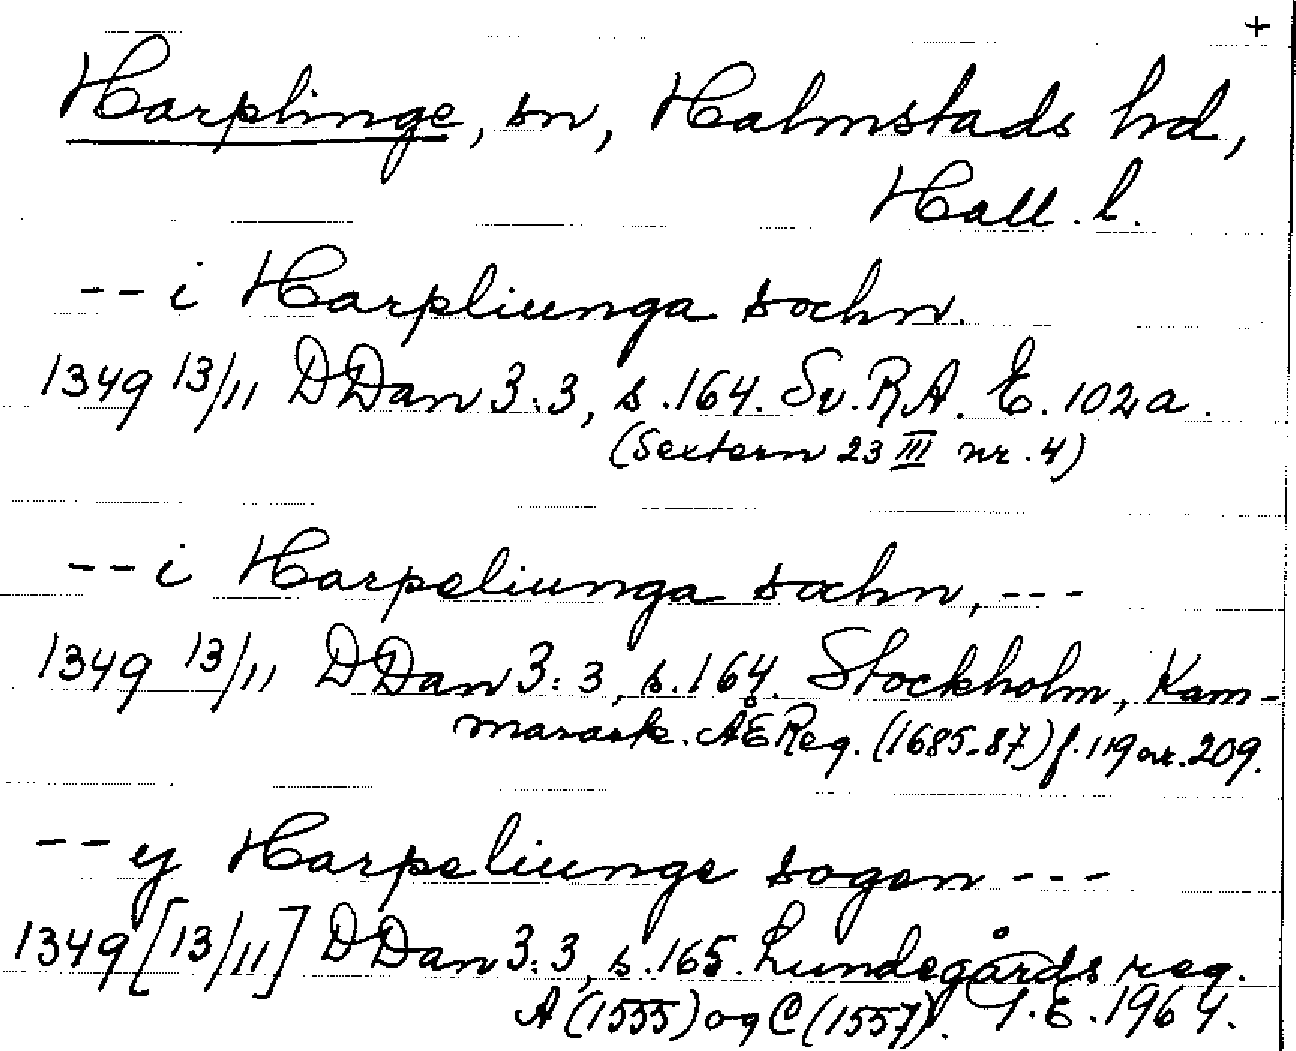 +
Harplinge, sn, Halmstads hd,
Hall. l.
-- i Harpliunga sochn.
1349 13/11 DDan 3:3, s.164. Sv. R.A. E. 102a.
(Sextern 23 III nr. 4)
-- i Harpeliunga sochn, ---
1349 13/11 DDan 3:3, s.164. Stockholm, Kam-
marark. ÅEReg. (1685-87) f. 119 nr. 209.
-- y Harpeliunge sogen ---
1349 [13/11] DDan 3:3, s.165. Lundegårds reg.
A (1555) og C (1557). G.E. 1964.